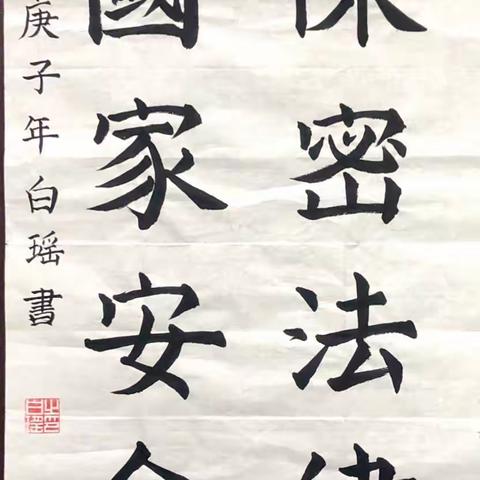 保密法律
國家安全
庚子年白瑶書